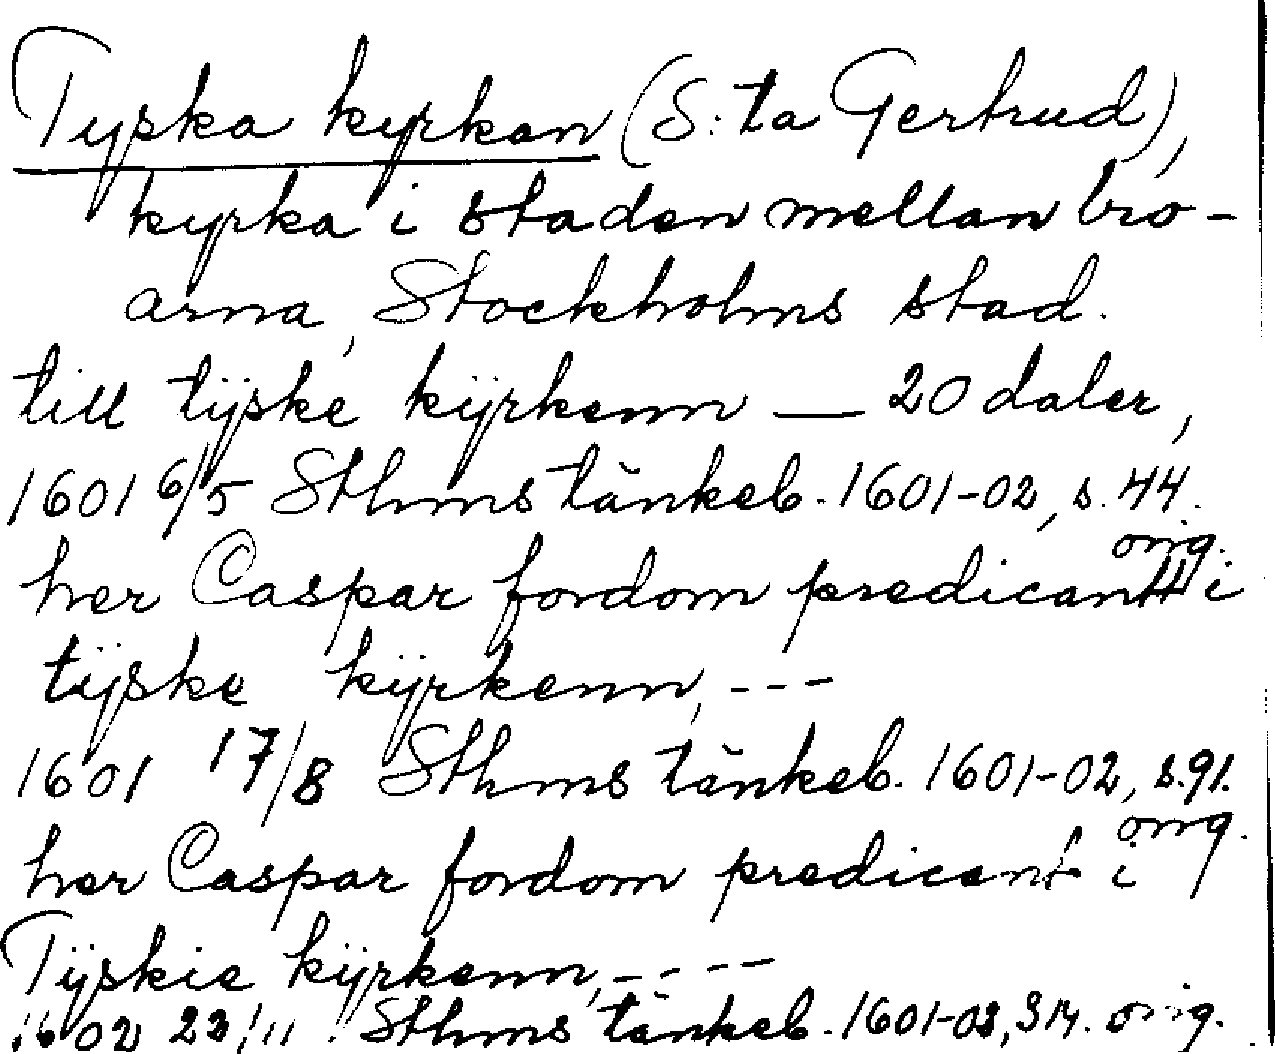 Tyska kyrkan (S:ta Gertrud),
kyrka i staden mellan bro-
arna, Stockholms stad.
till tÿske kÿrkenn — 20 daler,
1601 6/5 Sthms tänkeb. 1601-02, s. 44.
orig.
her Caspar fordom predicantt i
tÿske kÿrkenn, ---
1601 17/8 Sthms tänkeb. 1601-02, s. 91.
orig.
her Caspar fordom predicant i
Tÿskie kÿrkenn, ----
1602 22/11. Sthms tänkeb. 1601-02, 314. orig.